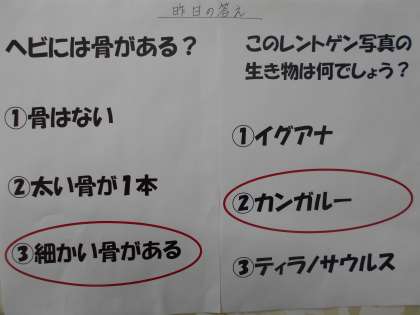 昨日の答え
ヘビには骨がある？
①骨はない
②太い骨が1本
③細かい骨がある
このレントゲン写真の
生き物は何でしょう？
①イグアナ
②カンガルー
③ティラノサウルス